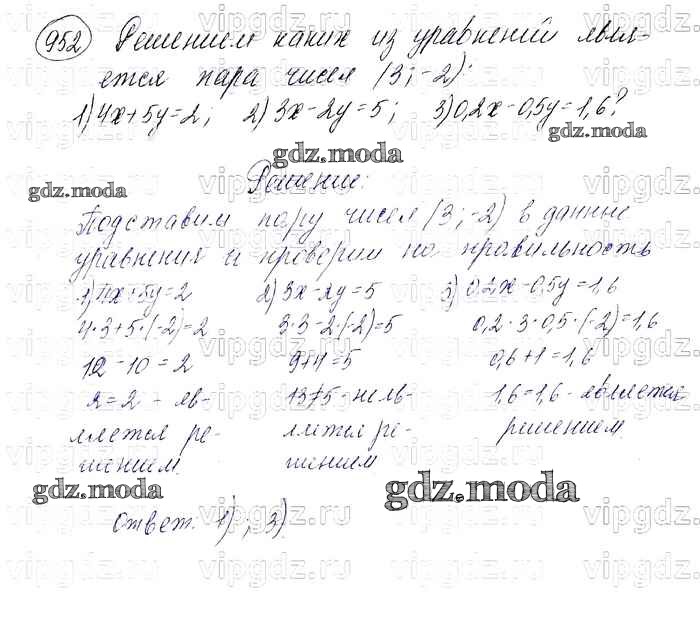 952 Решением каких из уравнений явля-
ется пара чисел (3; -2):
1) 4x+5y=2; 2) 3x-2y=5; 3) 0,2x-0,5y=1,6?
gdz.moda
Решение:
gdz.moda
gdz.moda
Подставим пару чисел (3; -2) в данные
уравнения и проверим на правильность
1) 4x+5y=2 2) 3x-2y=5 3) 0,2x-0,5y=1,6
4·3+5·(-2)=2 3·3-2·(-2)=5 0,2·3-0,5·(-2)=1,6
12-10=2 9+4=5 0,6+1=1,6
2=2 - яв- 13≠5 - не яв- 1,6=1,6 - является
ляется ре- ляется ре- решением.
шением. шением
gdz.moda gdz.moda
Ответ: 1); 3)
vipgdz.ru